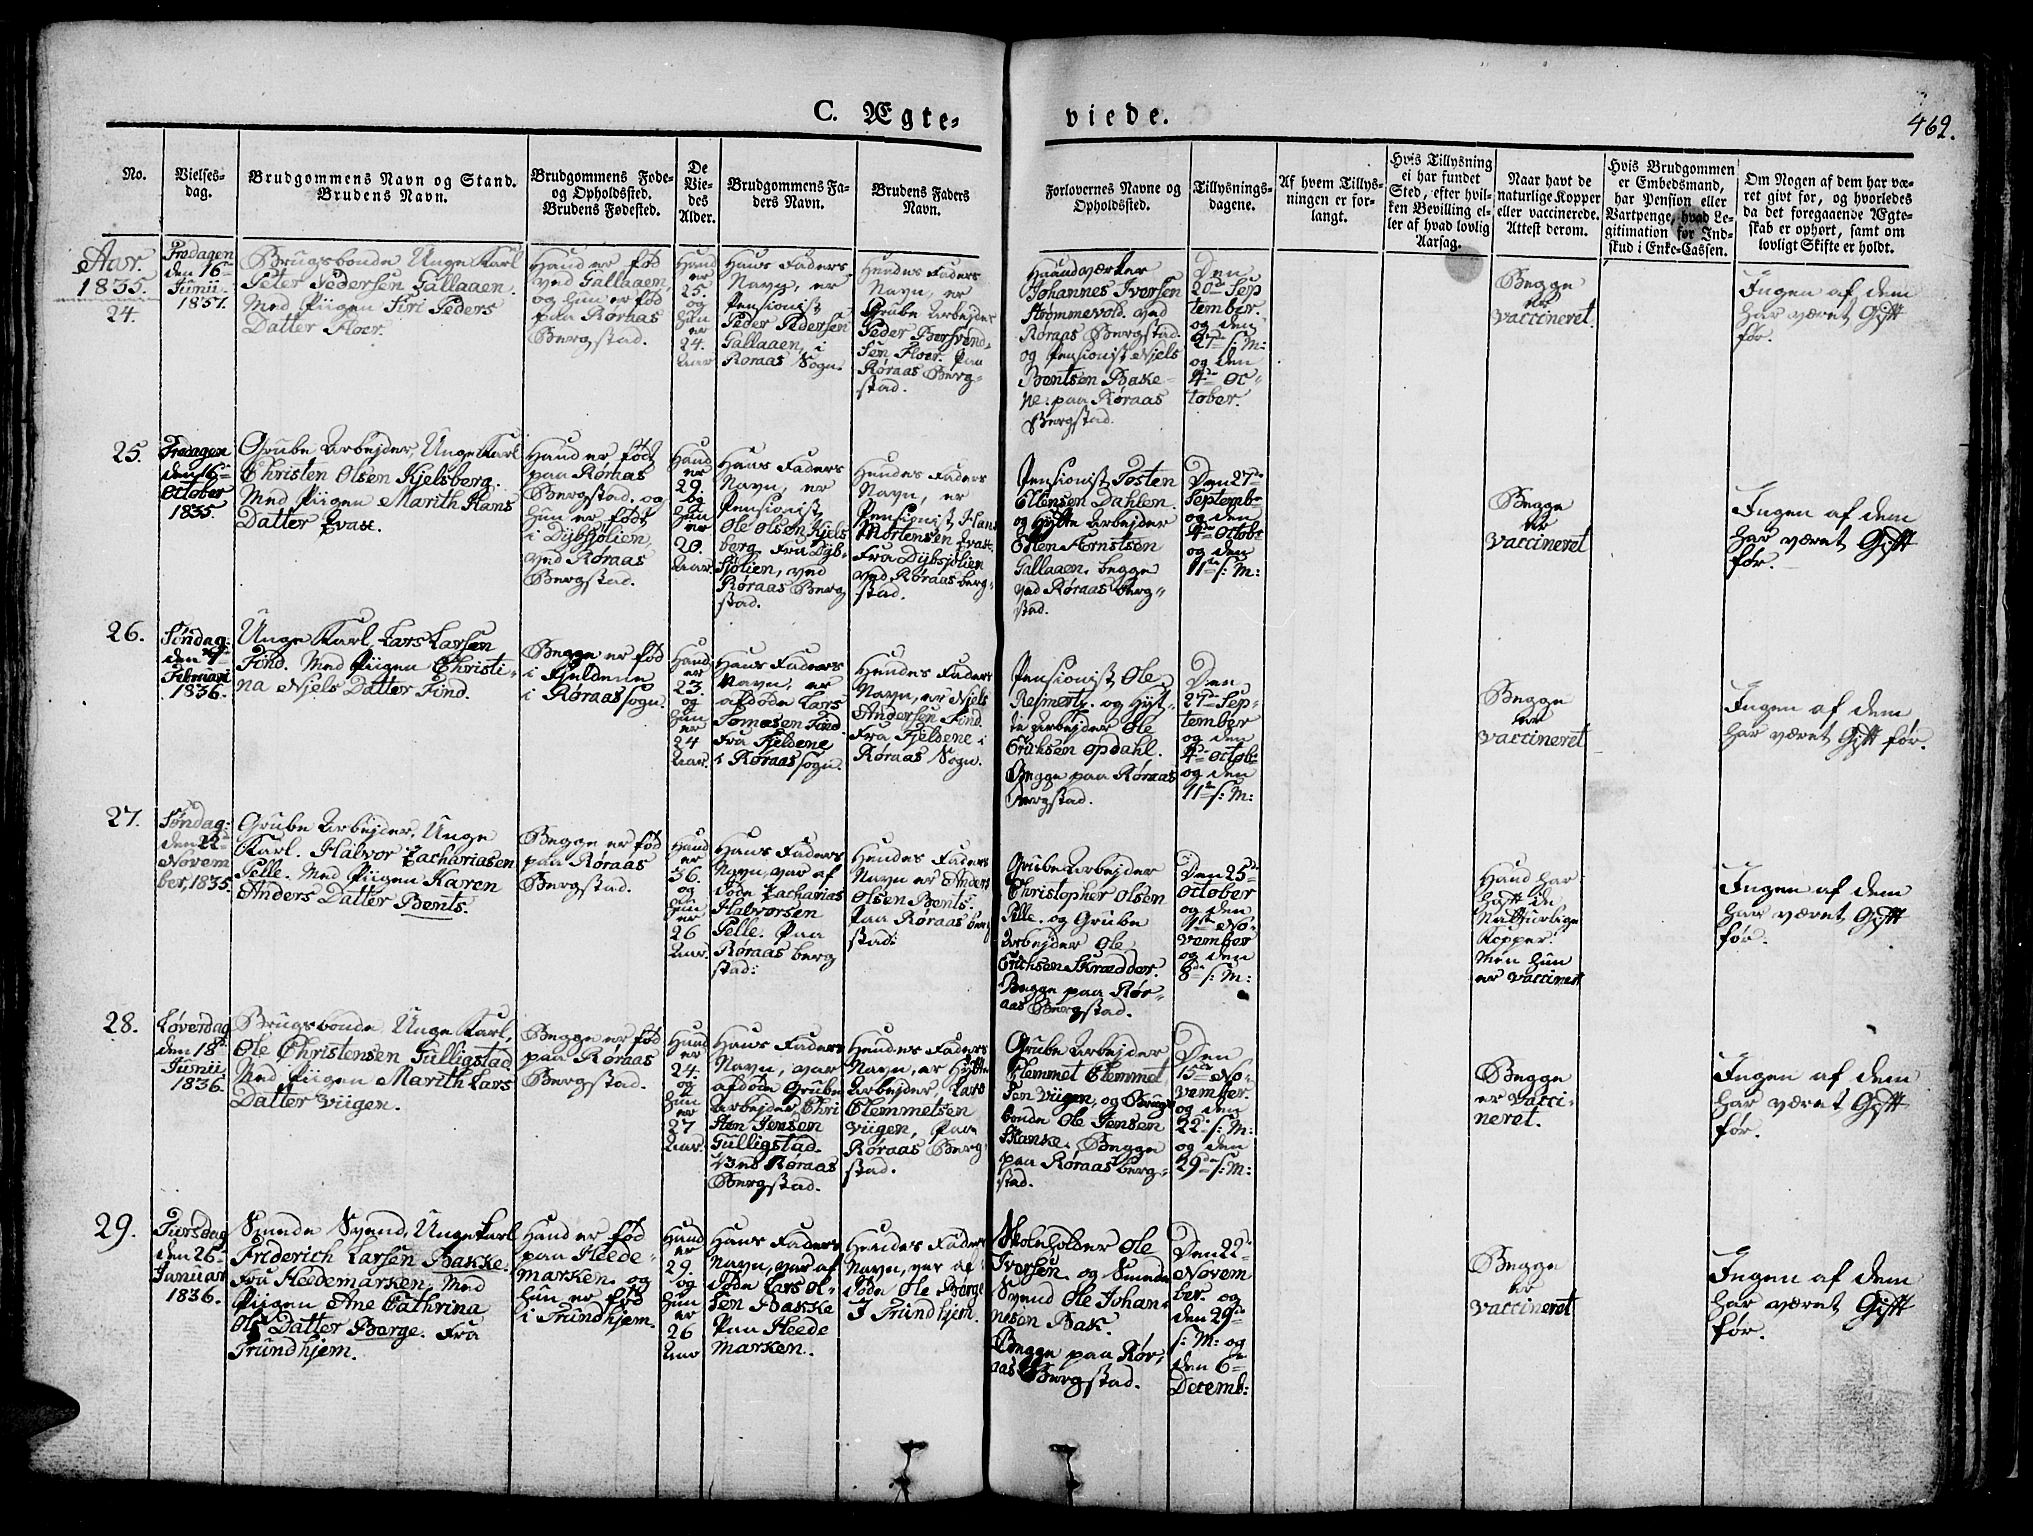 C. Ægte-
viede.
462.
No.
Vielses-
dag.
Brudgommens Navn og Stand.
Brudens Navn.
Brudgommens Føde-
og Opholdssted.
Brudens Fødested.
De
Vie-
des
Alder.
Brudgommens Fa-
ders Navn.
Brudens Faders
Navn.
Forlovernes Navne og
Opholdssted.
Tillysnings-
dagene.
Af hvem Tillys-
ningen er for-
langt.
Hvis Tillysning
ei har fundet
Sted, efter hvil-
ken Bevilling el-
ler af hvad lovlig
Aarsag.
Naar havt de
naturlige Kopper
eller vaccinerede.
Attest derom.
Hvis Brudgommen
er Embedsmand,
har Pension eller
Vartpenge, hvad Le-
gitimation for Ind-
skud i Enke-Cassen.
Om Nogen af dem har væ-
ret givt før, og hvorledes
da det foregaaende Ægte-
skab er ophørt, samt om
lovligt Skifte er holdt.
Aar.
1835.
24.
Fredagen
den 16
Junii
Brugsbonde Unge Karl
Peter Pedersen Gallaaen.
Med Piigen Siri Peders
Datter Floer.
Hand er fød
ved Gallaaen,
og hun er fød
paa Røraas
Bergstad.
Hand
er
25.
og
hun
er
24.
Aar
Hans Faders
Navn, er
Pensionist
Peder Pedersen
Gallaaen, i
Røraas Sogn.
Hendes Faders
Navn, er
Grube Arbejder
Peder Bersvend-
sen Floer. Paa
Røraas Berg-
stad.
Haandværker
Johannes Iversen
Strømmevold. ved
Røraas Bergstad.
og Pensionist Niels
Bentsen Bake-
ne. paa Røraas
Bergstad.
Den
20de Sep
tember.
og den
27de s: M:
og den
4de Oc-
tober.
Begge
er
vaccineret.
Ingen af dem
har været Gift
før.
25.
Fredagen
den 16
October
1835.
Grube Arbejder, Unge Karl
Christen Olsen Kjelsberg.
Med Piigen Marith Hans
Datter Evast.
Hand er født
paa Røraas
Bergstad. og
hun er født
i Dybsjølien,
ved Røraas
Bergstad.
Hand
er
29.
og
hun
er
20.
Aar.
Hans Faders
Navn, er
Pensionist
Ole Olsen Kjels
berg Fra Dyb-
sjølien, ved
Røraas Berg
stad.
Hendes Faders
Navn, er
Pensionist Hans
Mortensen
Fra Dybsjølien
ved Røraas berg-
stad.
Pensionist Josten
Ellensen Dahlen.
og Hytte Arbejder
Ellen Arntsen
Gallaaen. begge
ved Røraas berg-
stad.
Den 27de
Septembr
og den
4de Octobr
og den
11te s: M:
Begge
er
vaccineret
Ingen af dem
har været Gift
før.
26.
Søndag
den 7de
Februari
1836.
Unge Karl, Lars Larsen
Find. Med Piigen Christi-
na Njels Datter Find.
Begge er fød
i Fjeldene
i Røraas sogn.
Hand
er
23.
og
hun
er
24
Aar.
Hans Faders
Navn, er
afdøde Lars
Tomæsen Find
Fra Fjeldene
i Røraas sogn.
Hendes Faders
Navn, er Njels
Andersen Find.
Fra Fjeldene i
Røraas Sogn.
Pensionist Ole
og Hyt-
te Arbejder Ole
Erichsen Opdahl.
Begge paa Røraas
Bergstad.
Den
27de Sep-
tember
og den
4de Octobr
og den
11te s: M:
Begge
er
vaccineret
Ingen af dem
har været Gift før.
27.
Søndag
den 22
Novem
ber, 1835.
Grube Arbejder, Unge
Karl. Halvor Zachariasen
Pelle. Med Piigen Karen
Anders Datter Bents.
Begge er fød
paa Røraas
Bergstad.
Hand
er
36.
og
hun
er
26
Aar.
Hans Faders
Navn, var af
døde Zacharias
Halvorsen
Pelle. Paa
Røraas berg
stad:
Hendes Faders
Navn er Anders
Olsen Bents.
Paa Røraas berg
stad:
Grube Arbejder
Christopher Olsen
Pelle. og Grube
Arbejder Ole
Erichsen Skrædder.
Begge paa Rør-
aas Bergstad.
Den 25de
October
og den
1ste No-
vember
og den
8de s: M:
Hand har
haft de
Natturlige
Kopper.
Men hun
er vaccineret
Ingen af dem
har været Gift
før.
28.
Løverdag
den 18de
Junii,
1836.
Brugsbonde, Unge Karl,
Ole Christensen Gulligstad
Med Piigen Marith Lars
Datter Viigen.
Begge er fød
paa Røraas
Bergstad.
Hand
er
24.
og
hun
er
27
Aar.
Hans Faders
Navn, var
afdøde Grube
Arbejder, Chri
sten Jensen
Gulligstad.
Ved Røraas
Bergstad.
Hendes Faders
Navn, er Hytte
Arbejder, Lars
Clemmetsen
Viigen, Paa
Røraas Berg-
stad.
Grube Arbejder
Clemmet Clemmet
sen Viigen, og Brugs
bonde Ole Jensen
Skanke. Begge
paa Røraas berg-
stad.
Den
15de No-
vember.
og den
22 s: M:
og den
29de s: M:
Begge
er vacci-
neret.
Ingen af dem
har været Gift
før.
29.
Tirsdag
den 26
Januar
1836.
Smede Svend, Unge Karl
Friderich Larsen Bakke.
Fra Hedemarken. Med
Piigen Ane Cathrina
Ols Datter Berge. Fra
Trundhjem.
Hand er fød
paa Heede-
marken. og
hun er fød
i Trundhjem.
Hand
er
29.
og
hun
er
26
Aar
Hans Faders
Navn, var af
døde Lars Ol-
sen Bakke
Paa Heede
marken.
Hendes Faders
Navn, var af
døde Ole Berge
I Trundhjem.
Skoleholder Ole
Iversen. og Smede
Svend Ole Johan-
nesen Bak.
Begge paa Rør,
aas Bergstad.
Den 22
Novem
ber. og
den 29de
s: M: og
den 6te
Decemb:
Begge
er
vaccineret
Ingen af dem
har været Gift
før.